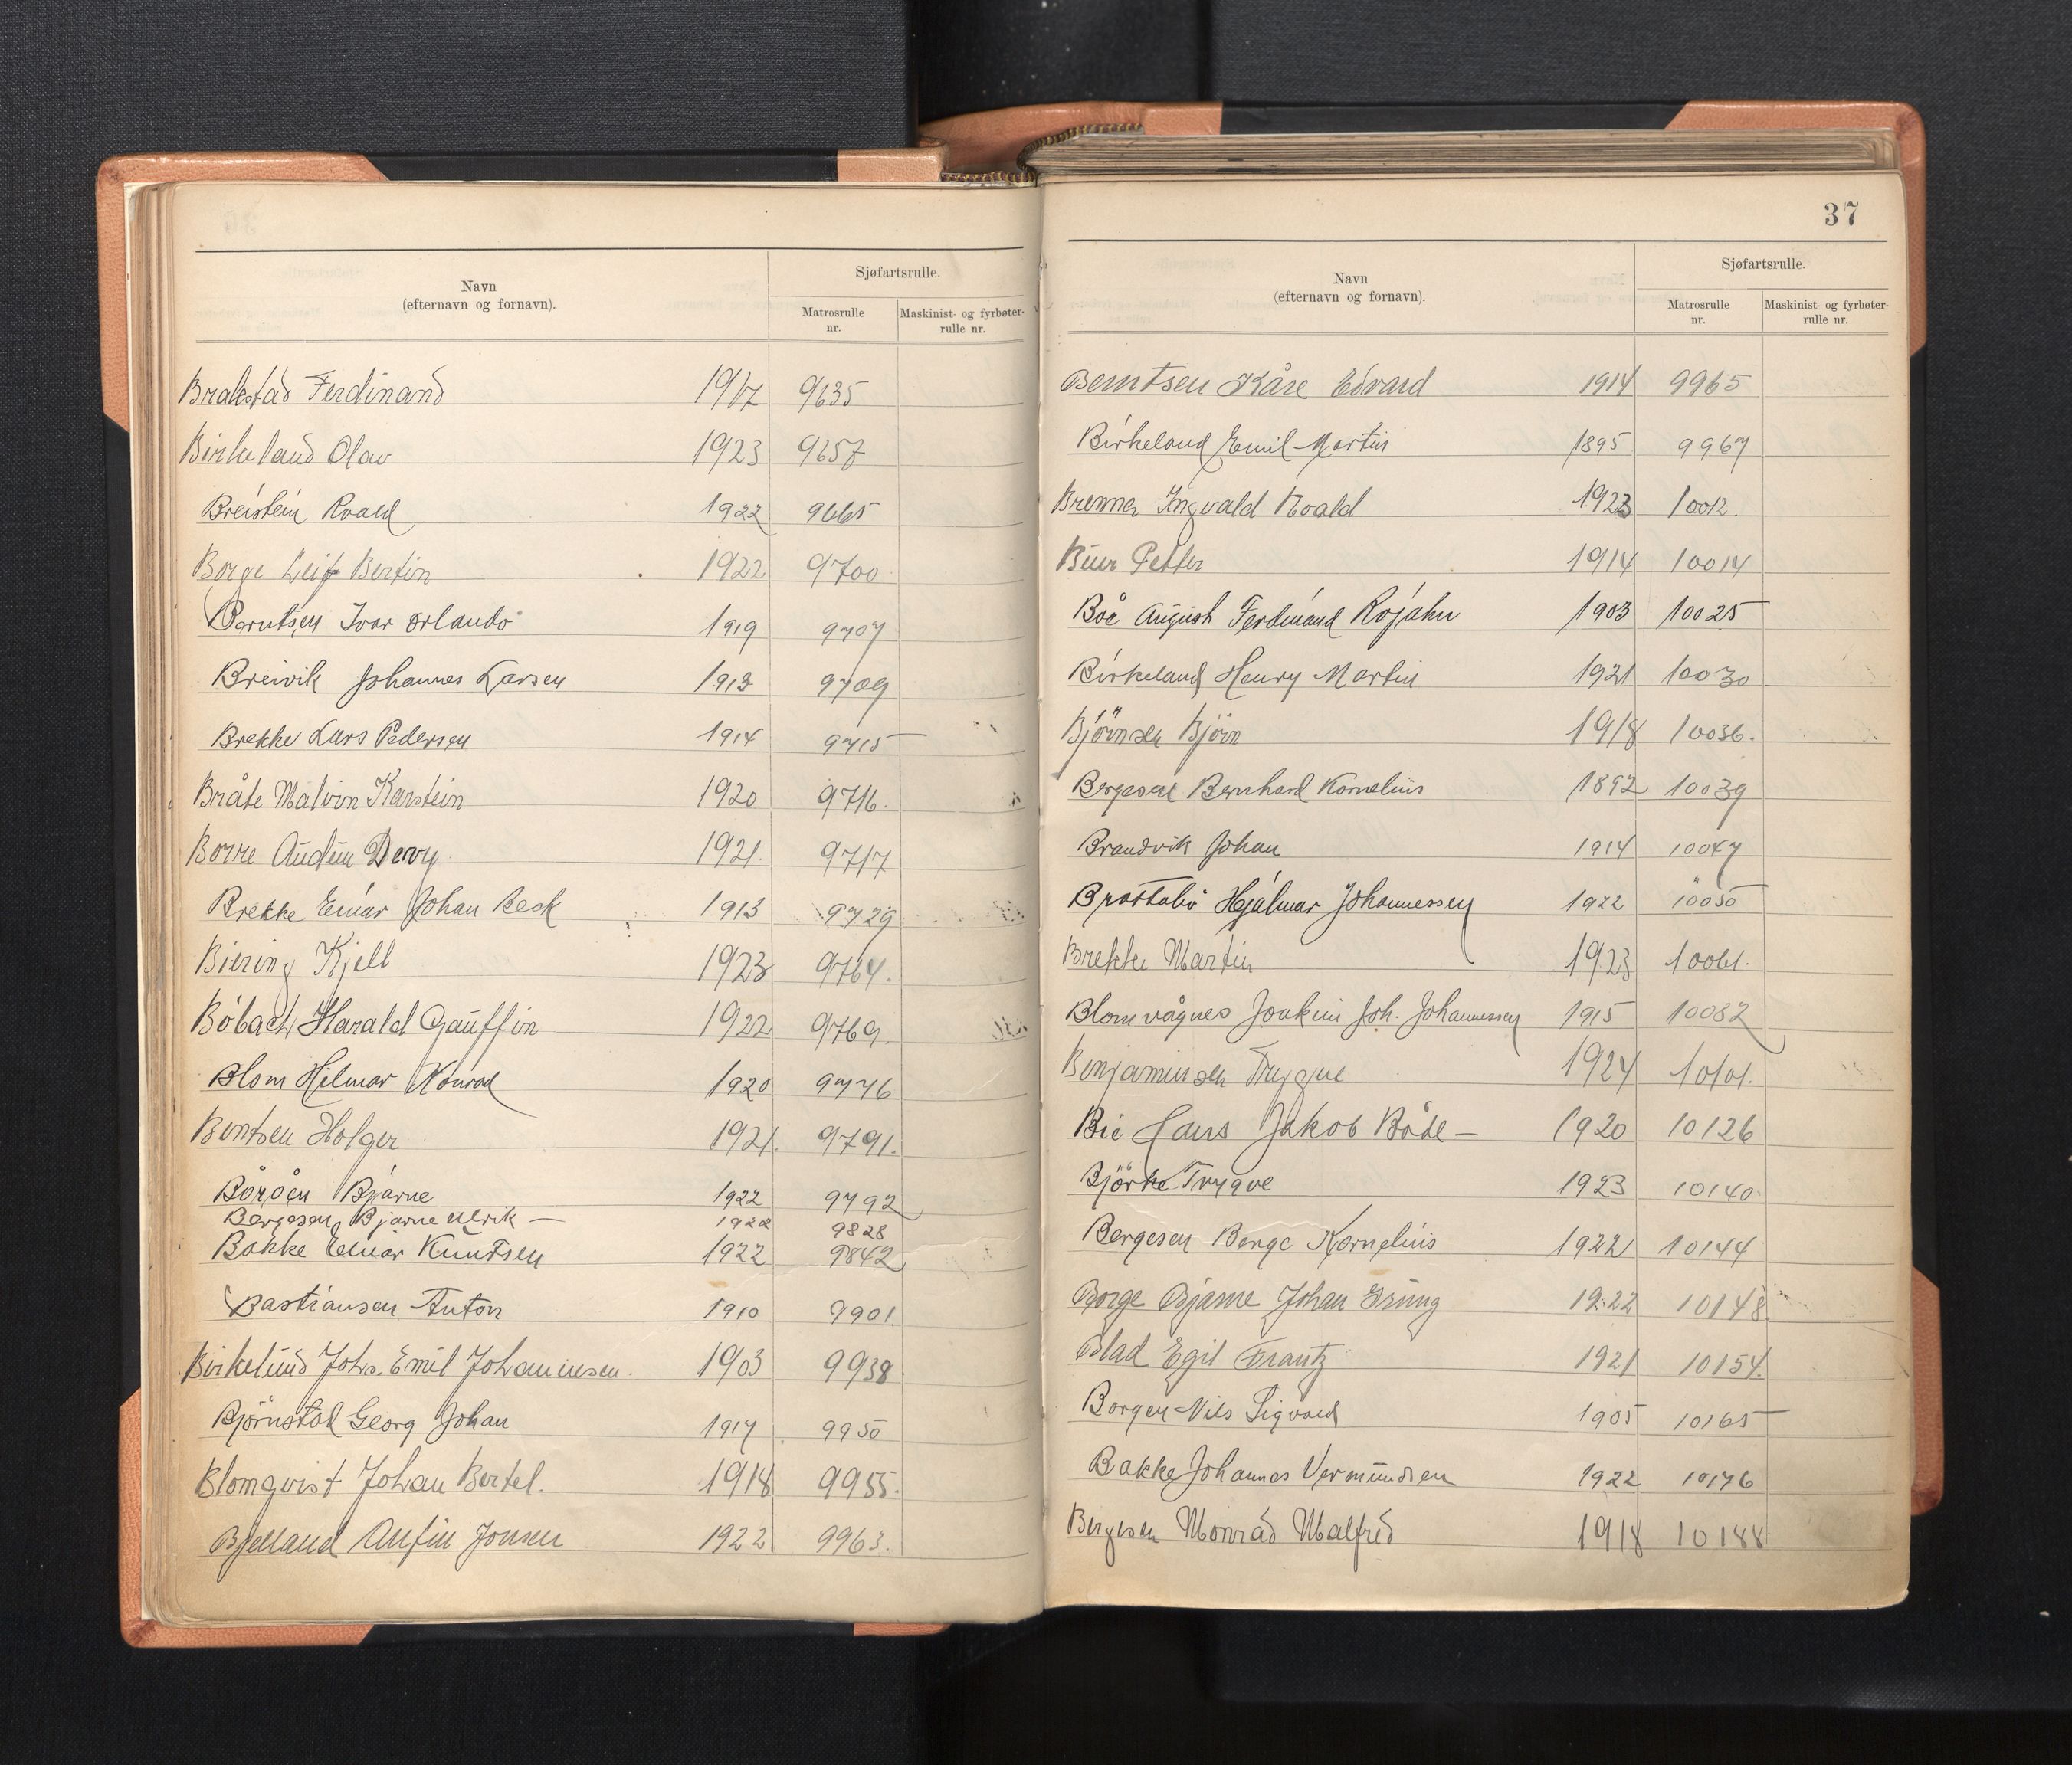 Navn
(efternavn og fornavn).
Sjøfartsrulle.
Matrosrulle
nr.
Maskinist- og fyrbøter-
rulle nr.
Brakstad Ferdinand 1917 9635
Birkeland Olav 1923 9657
Breistein Roald 1922 9665
Borge Leif Bertin 1922 9700
Berntsen Ivar Orlando 1919 9707
Breivik Johannes Larsen 1913 9709
Brekke Lars Pedersen 1914 9715
Bråte Malvin Karstein 1920 9716.
Borre Audun 1921. 9717
Brekke Einar Johan Beck 1913 9729
Biering Kjell 1923 9764.
Böbach Harald Gauffin 1922 9769.
Blom Hilmar Konrad 1920 9776
Bentsen Holger 1921. 9791.
Böröen Bjarne 1922 9792
Bergesen, Bjarne Ulrik — 9828
Bakke Einar Knutsen 1922 9842
Bastiansen Anton 1910 9901.
Birkelund Johs. Emil Johannesen. 1903 9938
Bjørnstad Georg Johan 1917 9950
Blomqvist Johan Bertel. 1918 9955.
Bjelland Anfin Jonsen 1922 9963.
37
Navn
(efternavn og fornavn).
Sjøfartsrulle.
Matrosrulle
nr.
Maskinist- og fyrbøter-
rulle nr.
Berntsen Kåre Edvard 1914 9965
Birkeland Emil Martin 1895 9967
Brenner Ingvald Roald 1923 10012.
Buer Petter 1914 10014
Boe August Ferdinand Rojahn 1903 10025
Birkeland Henry Martin 1921 10030
Björnsen Björn 1918 10036.
Bergesen Bernhard Kornelius 1892 10039
Brandvik Johan 1914 10047
Brattabö Hjalmar Johannessen 1922 10050
Brekke Martin 1923 10061.
Blomvågnes Joakim Joh. Johannessen 1915 10082
Benjaminsen Trygve 1924 10101.
Bie Hans Jakob Böde — 1920 10126
Björke Trygve 1923 10140
Bergesen Berge Kornelius 1922 10144
Borge Bjarne Johan 1922 10148.
Blad Egil Frantz 1921 10154.
Borgen Nils Sigvard 1905 10165
Bakke Johannes Vermundsen 1922 10176
Bergesen Monrad Malfred 1918 10188